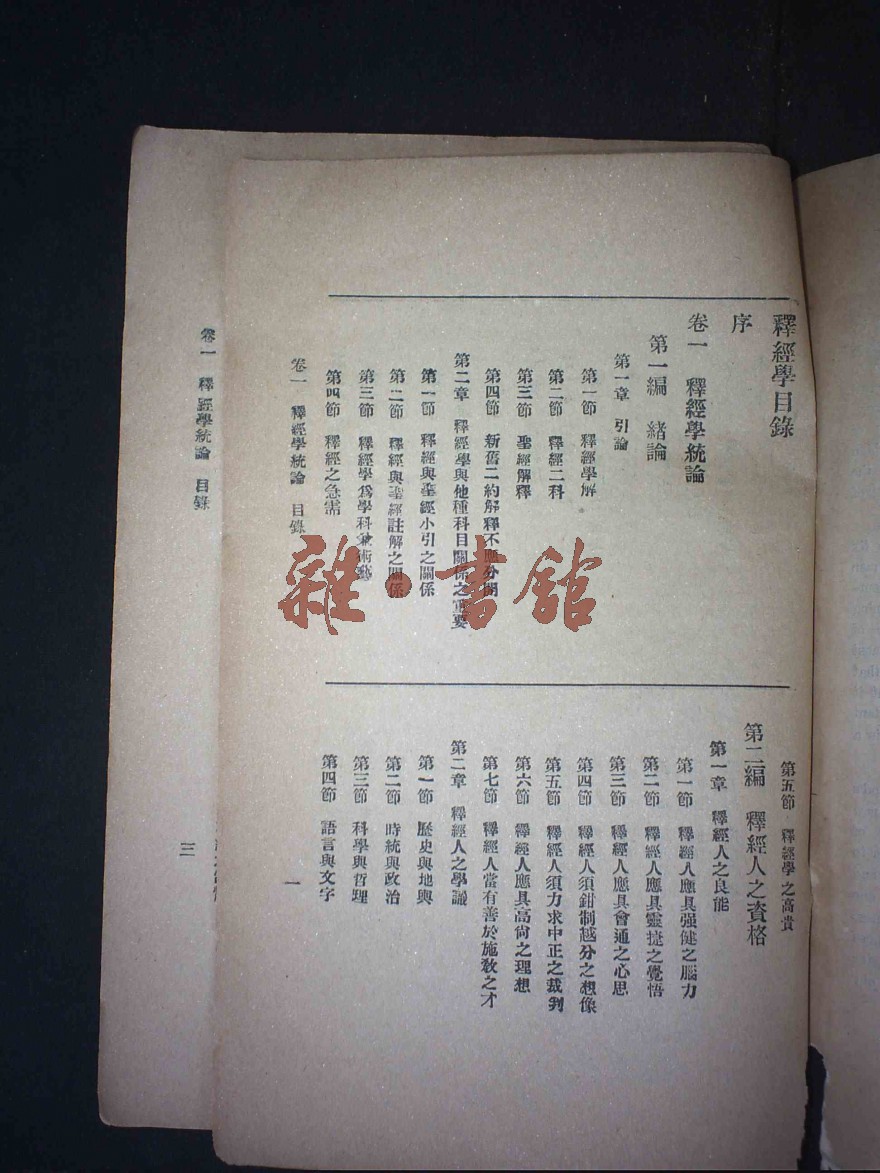 釋經學目錄
序
卷一 釋經學統論
第一編 緒論
第一章 引論
第一節 釋經學解
第二節 釋經二科
第三節 聖經解釋
第四節 新舊二約解釋不應分開
第二章 釋經學與他種科目關係之重要
第一節 釋經與聖經小引之關係
第二節 釋經與聖經註解之關係
第三節 釋經學爲學科兼術藝
第四節 釋經之急需
第五節 釋經學之高貴
第二編 釋經人之資格
第一章 釋經人之良能
第一節 釋經人應具强健之腦力
第二節 釋經人應具靈捷之覺悟
第三節 釋經人應具會通之心思
第四節 釋經人須鉗制越分之想像
第五節 釋經人須力求中正之裁判
第六節 釋經人應具高尙之理想
第七節 釋經人當有善於施敎之才
第二章 釋經人之學識
第一節 歷史與地輿
第二節 時統與政治
第三節 科學與哲理
第四節 語言與文字
卷一 釋經學統論 目錄
一
卷一 釋經學統論 目錄
三
雜·書館